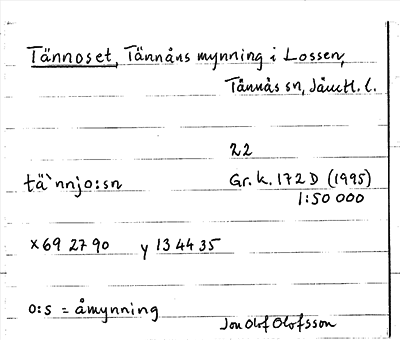 Tännoset, Tännåns mynning i Lossen,
Tännäs sn, Jämtl. l.
22
tä`nnjo:sn Gr. k. 172 D (1995)
1:50 000
x 69 27 90 y 13 44 35
o:s = åmynning
Jon Olof Olofsson